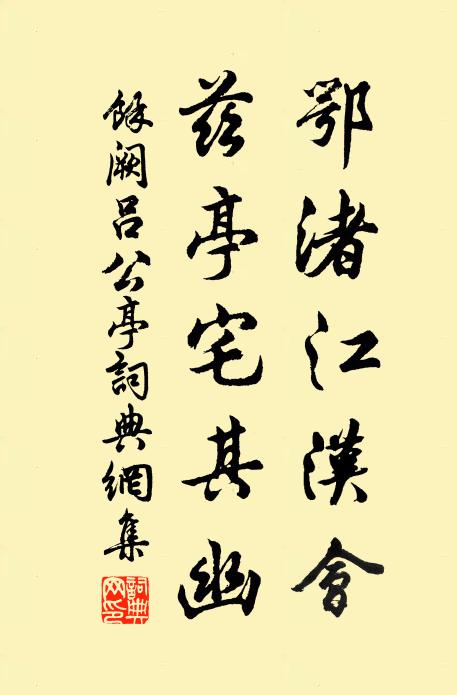 鄂渚江漢會
茲亭宅其幽
餘闕呂公亭詞典網集